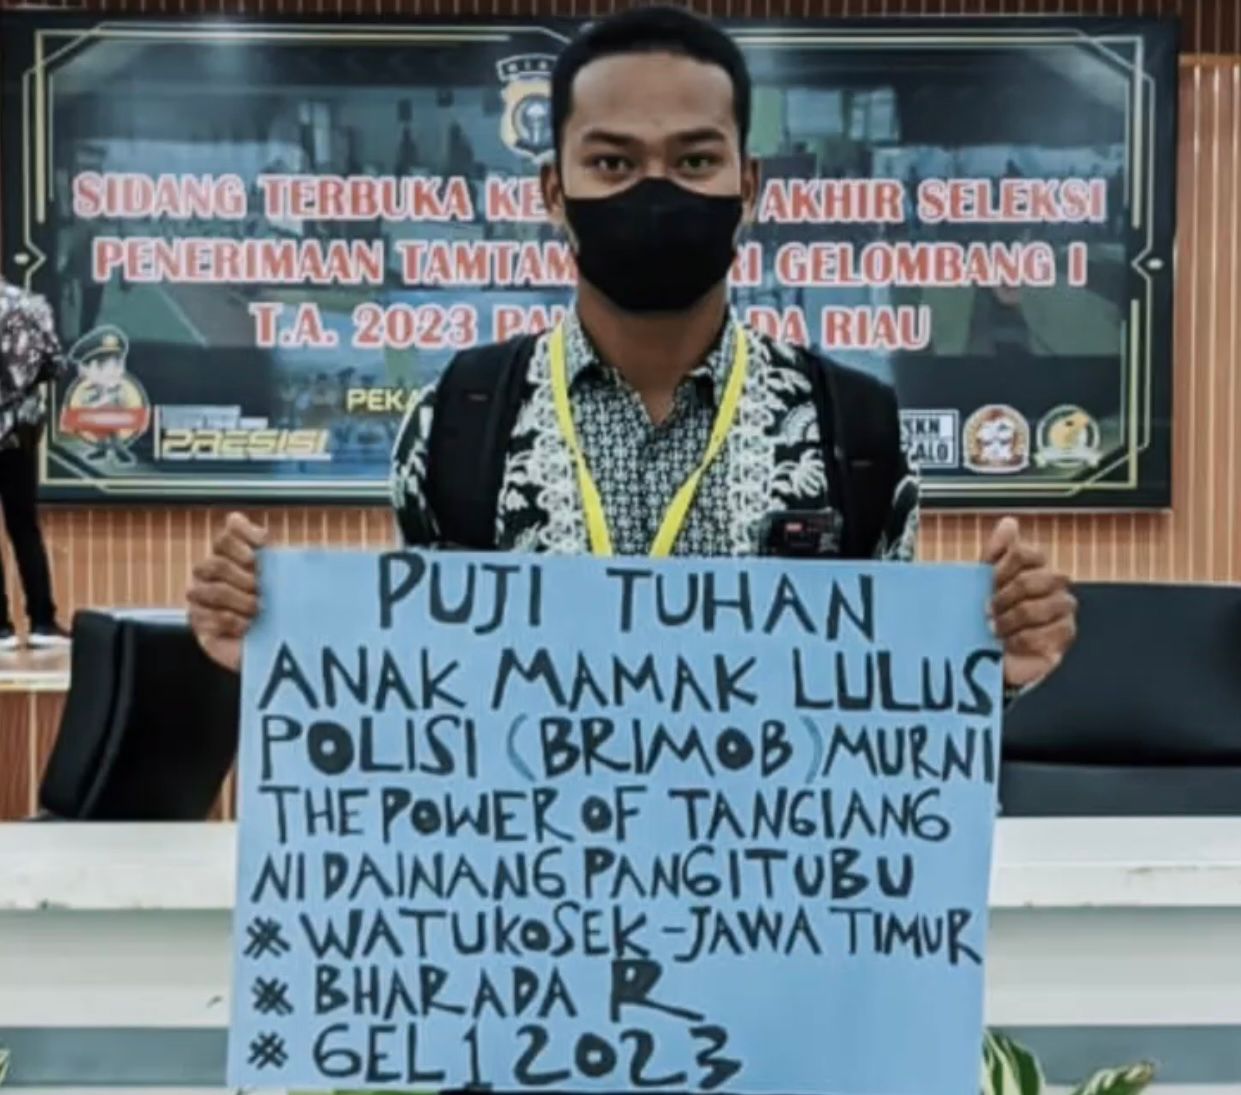 RIAU
SIDANG TERBUKA KE AKHIR SELEKSI
PENERIMAAN TAMTAM RI GELOMBANG I
T.A. 2023 PA DA RIAU
PEKA
PRESISI
KKN
CALO
PUJI TUHAN
ANAK MAMAK LULUS
POLISI (BRIMOB) MURNI
THE POWER OF TANGIANG
NI DAINANG PANGITUBU
# WATUKOSEK - JAWA TIMUR
# BHARADA R
# GEL 1 2023